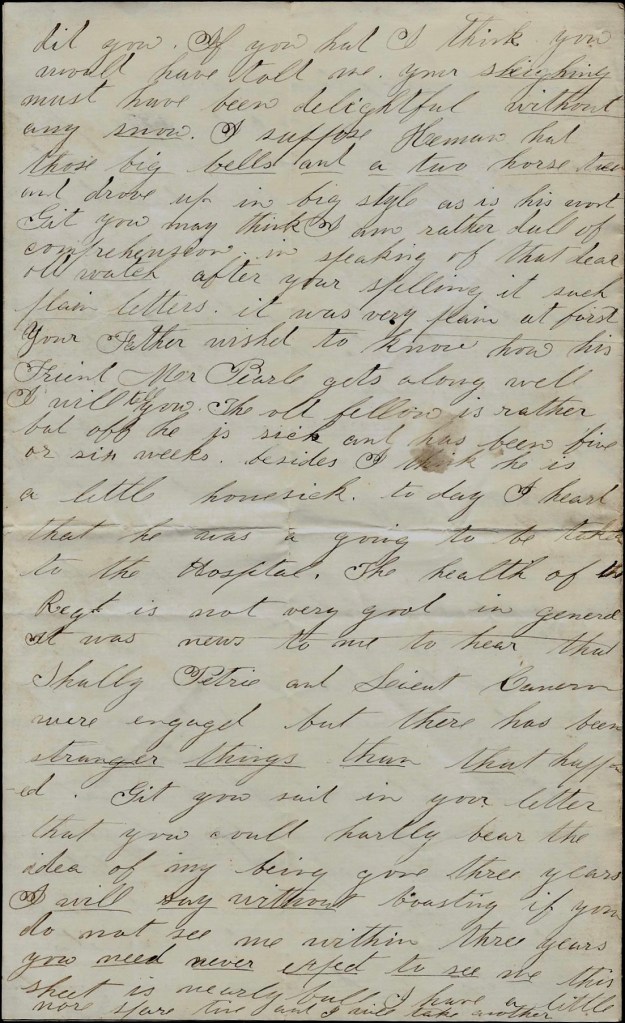 did you. If you had I think you
would have told me. your sleighing
must have been delightful without
any snow. I suppose Heman had
those big bells and a two horse team
and drove up in big style as is his wont
Git you may think I am rather dull of
comprehension in speaking of that dear
old watch after your spelling it such
plain letters. it was very plain at first
Your Father wished to know how his
Friend Mr Pearl gets along well
I will tell you. The old fellow is rather
bad off he is sick and has been five
or six weeks. besides I think he is
a little homesick. to day I heard
that he was a going to be taken
to the Hospital. The health of the
Regt is not very good in general
it was news to me to hear that
Petrie and Lieut Cameron
were engaged but there has been
stranger things than that happen
-ed. Git you said in your letter
that you could hardly bear the
idea of my being gone three years
I will say without boasting if you
do not see me within three years
you need never expect to see me this
sheet is nearly full I have a little
more spare time and I will take another